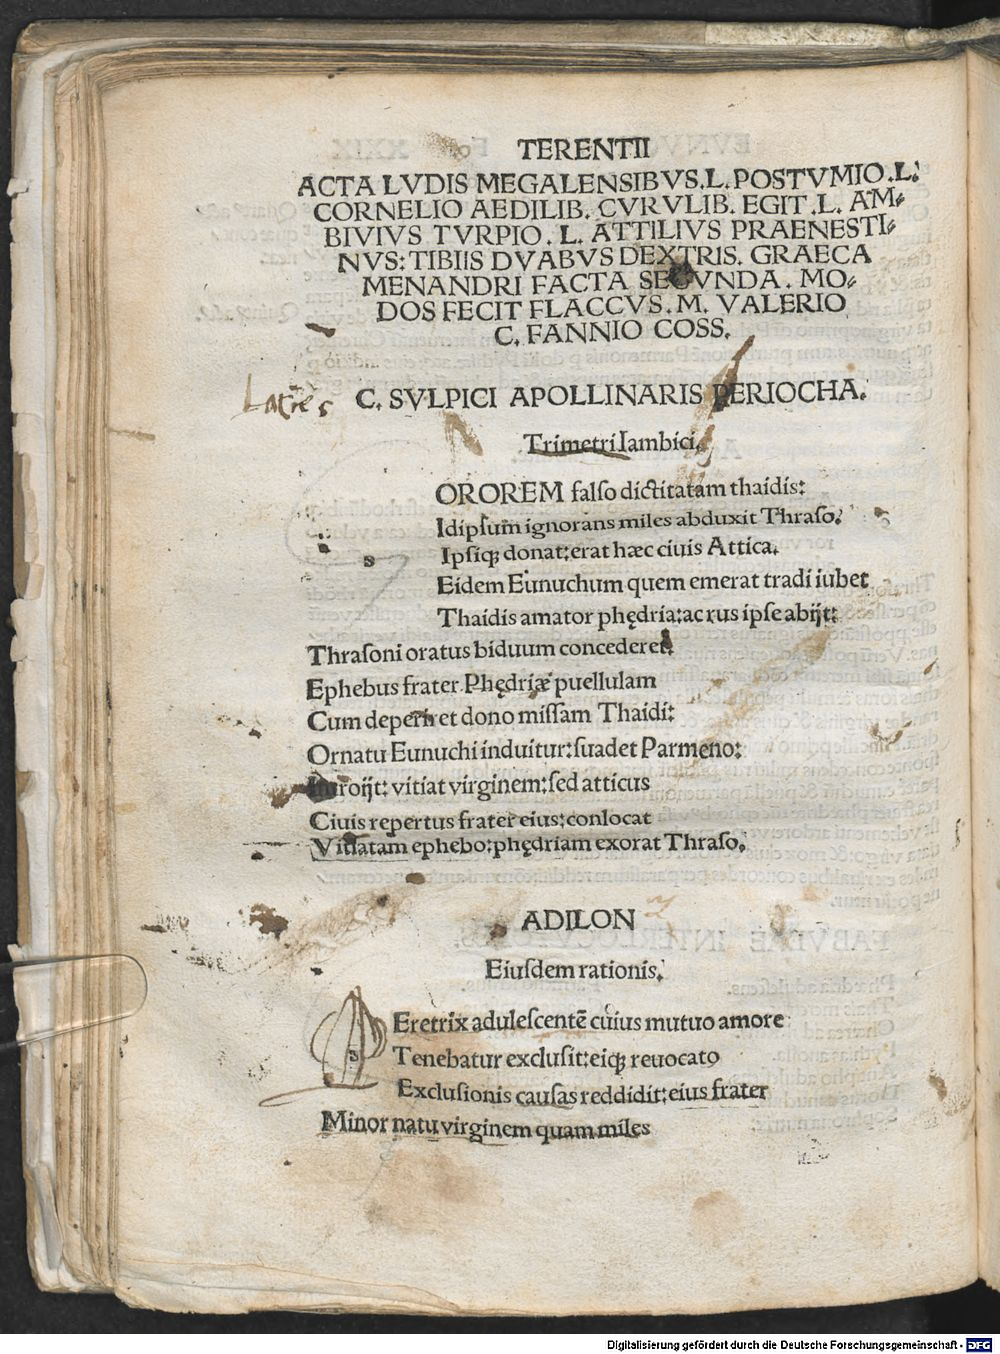 TERENTII
ACTA LVDIS MEGALENSIBVS.L.POSTVMIO.L.
CORNELIO AEDILIB. CVRVLIB. EGIT .L. AM-
BIVIVS TVRPIO. L. ATTILIVS PRAENESTI-
NVS:TIBIIS DVABVS DEXTRIS. GRAECA
MENANDRI FACTA SECVNDA. MO-
DOS FECIT FLACCVS. M. VALERIO
C. FANNIO COSS.
C. SVLPICI APOLLINARIS PERIOCHA.
Trimetri Iambici.
OROREM falso dictitatam thaidis:
Idipsum ignorans miles abduxit Thraso.
s Ipsiq; donat:erat hæc ciuis Attica.
Eidem Eunuchum quem emerat tradi iubet
Thaidis amator phędria:ac rus ipse abijt:
Thrasoni oratus biduum concederet.
Ephebus frater Phędriæ puellulam
Cum deperiret dono missam Thaidi:
Ornatu Eunuchi induitur:suadet Parmeno:
Introijt: vitiat virginem:sed atticus
Ciuis repertus frater eius:conlocat
Vitiatam ephebo:phędriam exorat Thraso.
ADILON
Eiusdem rationis.
Eretrix adulescentē cuius mutuo amore
s Tenebatur exclusit:eiq; reuocato
Exclusionis causas reddidit:eius frater
Minor natu virginem quam miles
Digitalisierung gefördert durch die Deutsche Forschungsgemeinschaft - DFG